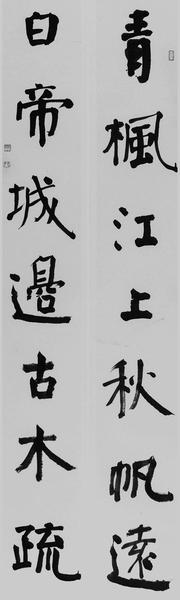 青楓江上秋帆遠
白帝城邊古木疏